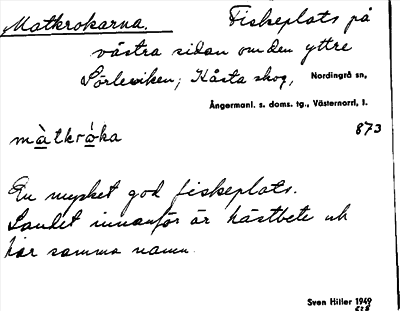 Matkrokarna. Fiskeplats på
västra sidan om den yttre
Sörleviken; Kåsta skog, Nordingrå sn,
Ångermanl. s. doms. tg., Västernorrl. l.
màtkròka 873
En mycket god fiskeplats.
Landet innanför är hästbete och
har samma namn.
Sven Hiller 1949